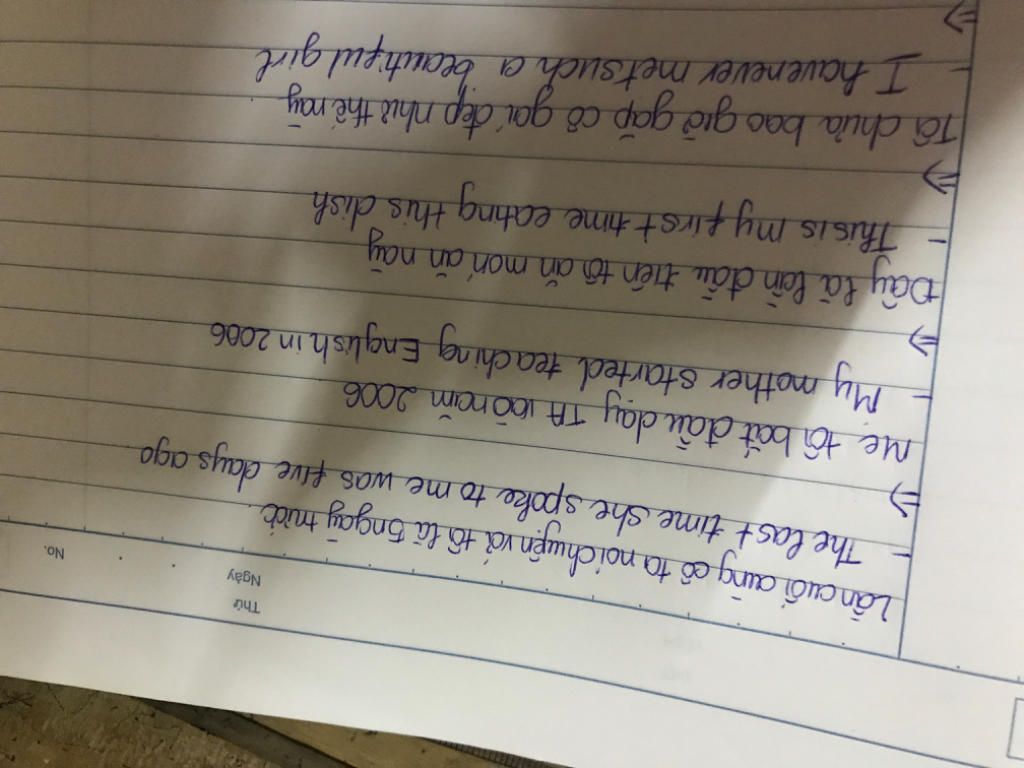 Thứ
Ngày
No.
Lần cuối cùng cô ta nói chuyện với tôi là 5 ngày trước.
- The last time she spoke to me was five days ago
⇒
Mẹ tôi bắt đầu dạy TA vào năm 2006
- My mother started teaching English in 2006
⇒
Đây là lần đầu tiên tôi ăn món ăn này
- This is my first time eating this dish
⇒
Tôi chưa bao giờ gặp cô gái đẹp như thế này.
- I have never met such a beautiful girl
⇒